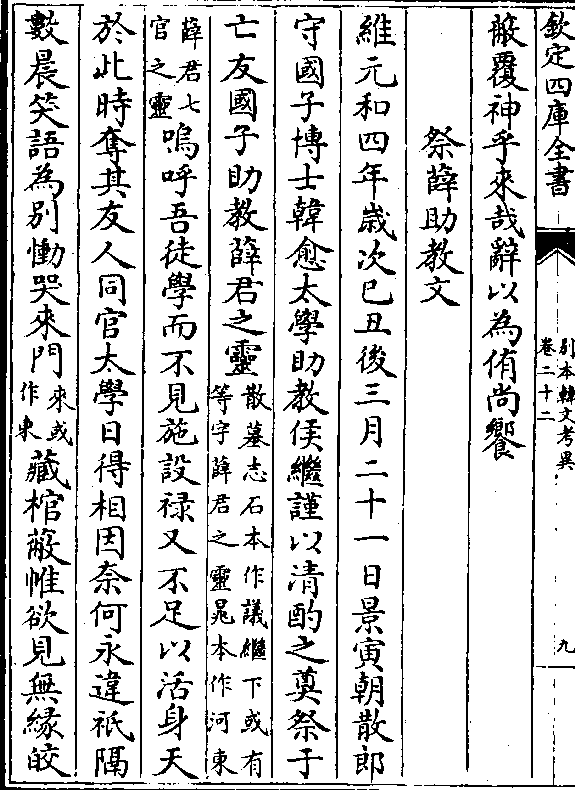 欽定四庫全書
別本韓文考異
卷二十二
九
蔽覆神乎來哉辭以為侑尚饗
祭薛助教文
維元和四年歲次已丑後三月二十一日景寅朝散郎
守國子博士韓愈太學助教侯繼謹以清酌之奠祭于
亡友國子助教薛君之靈
散墓志石本作議繼下或有
等字薛君之靈晁本作河東
薛君七
官之靈
嗚呼吾徒學而不見施設祿又不足以活身天
於此時奪其友人同官太學日得相因奈何永違祇隔
數晨笑語為別慟哭來門
來或
作東
藏棺蔽帷欲見無緣皎